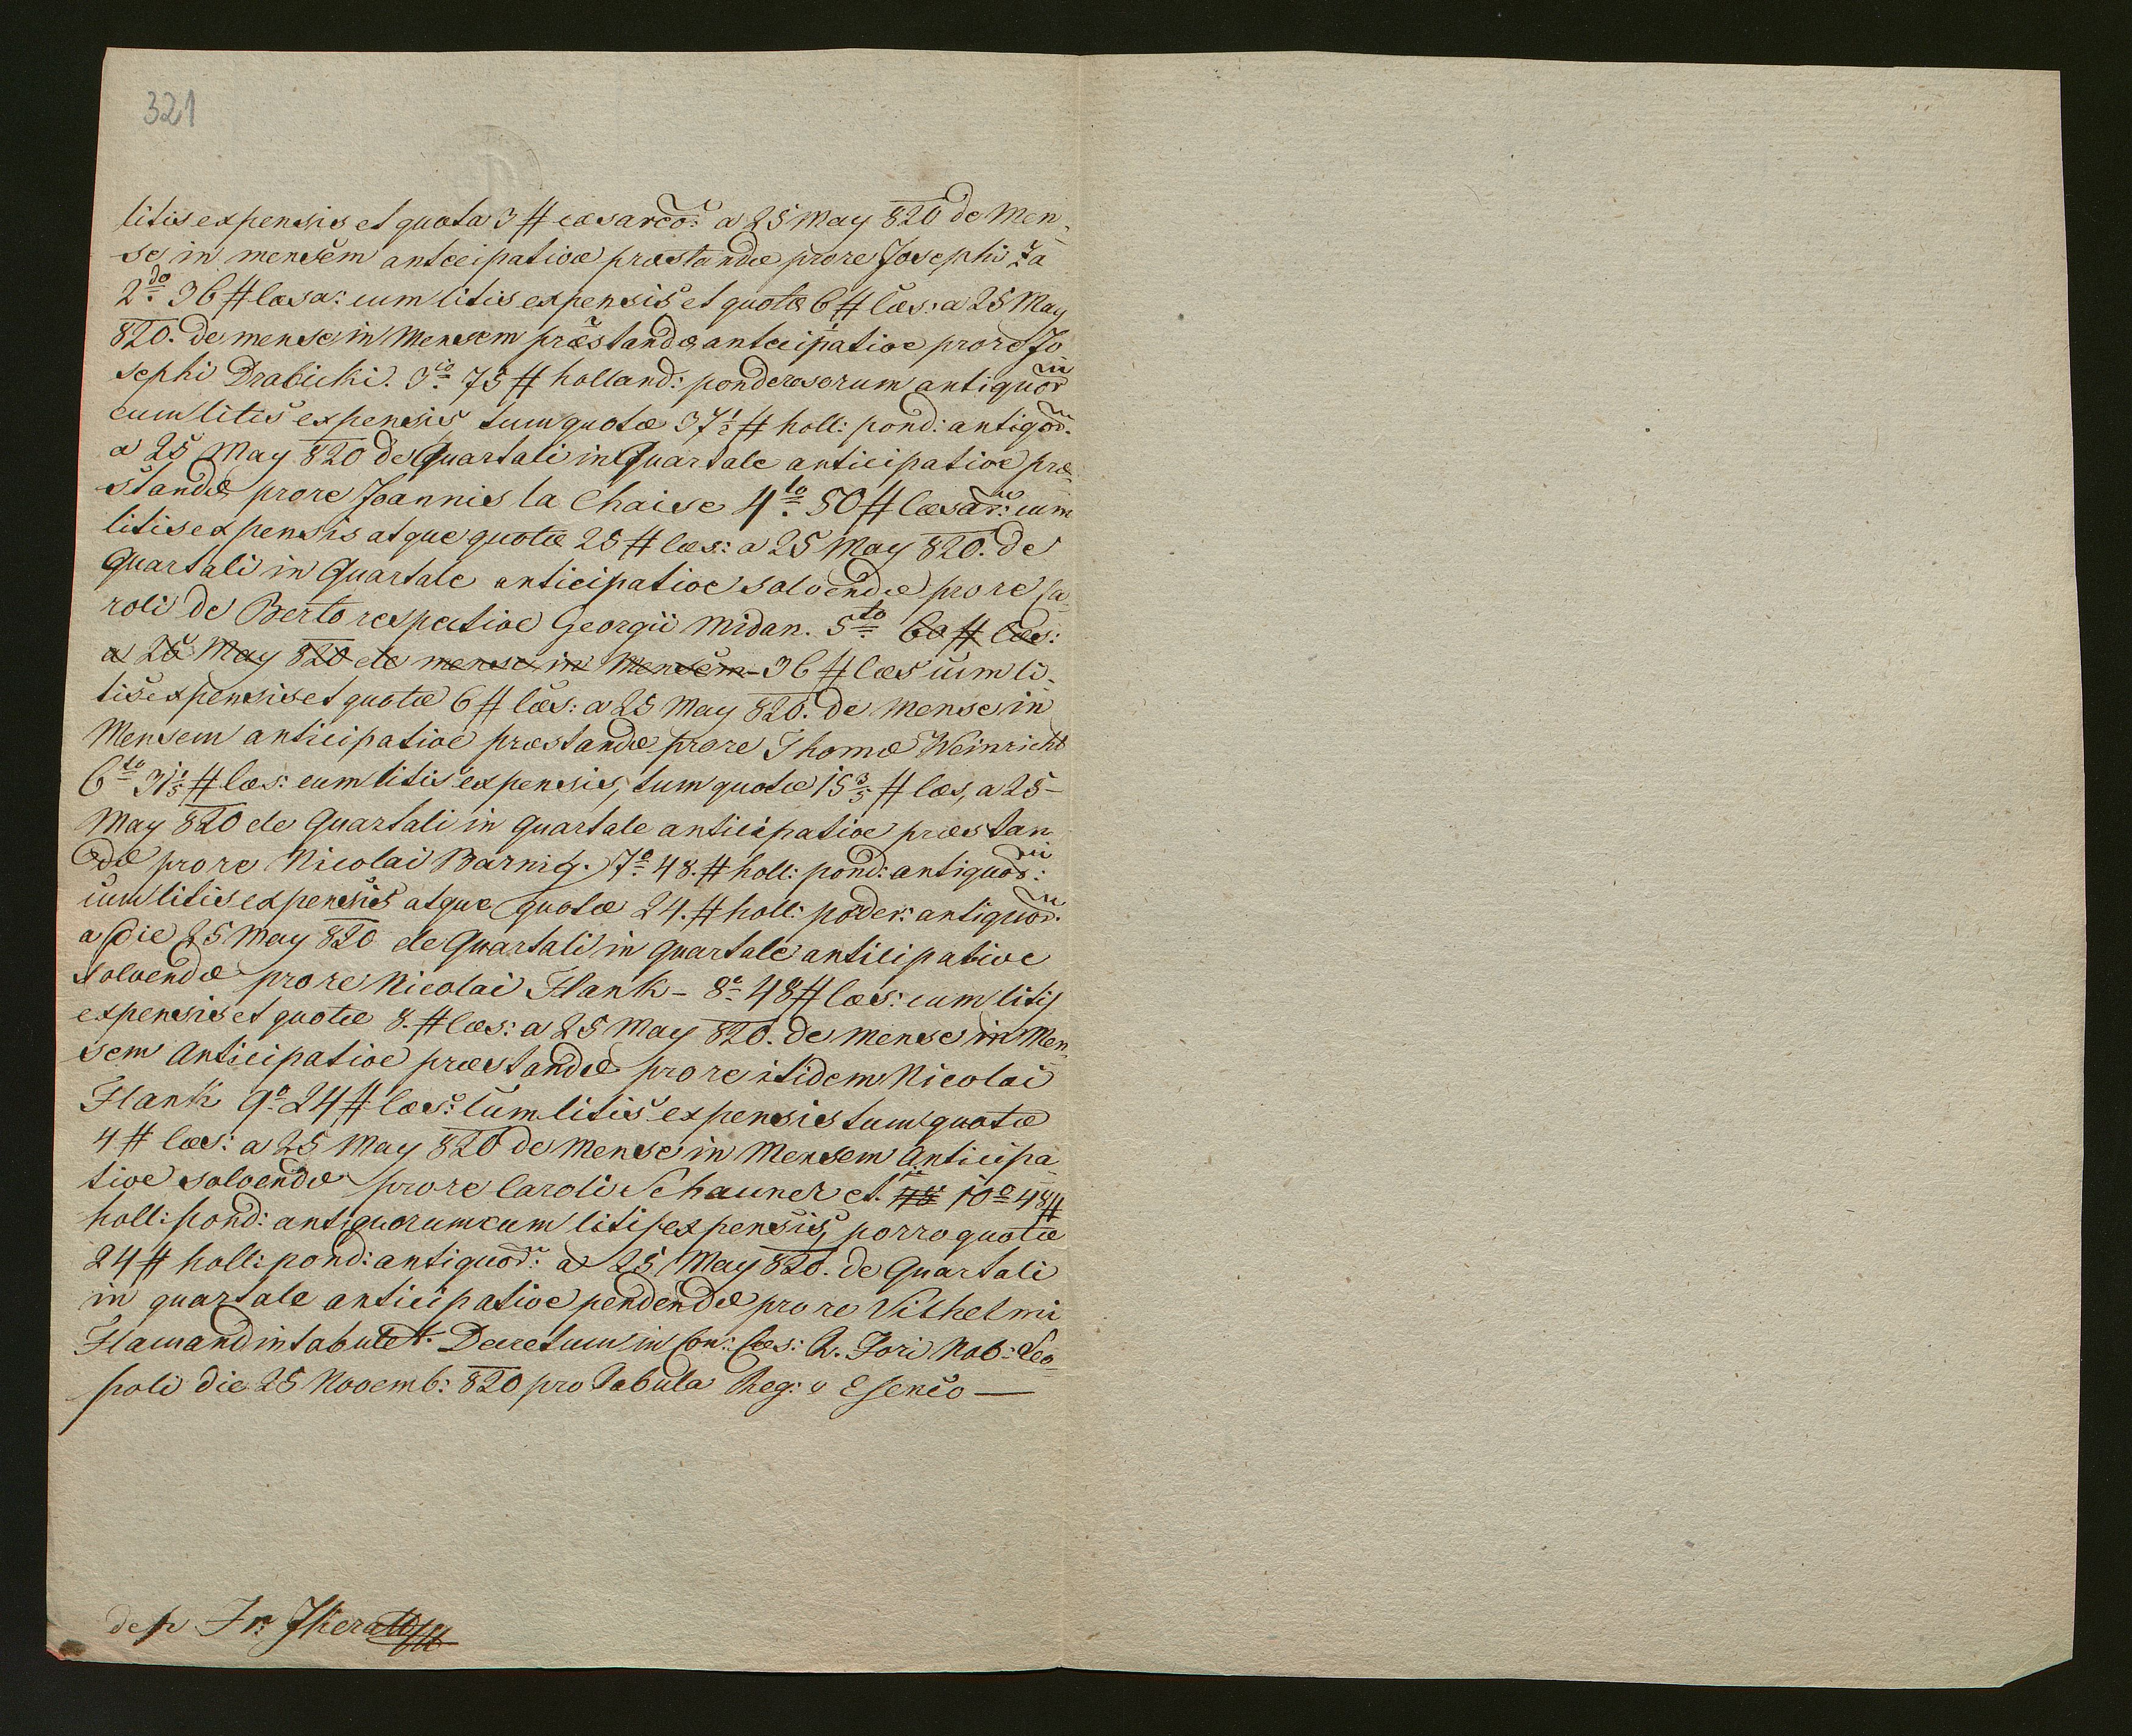 321
litis expensis et quota 3 # cæsareo: a 25 May 820 de Men-
se in mensem anticipative præstandæ pro re Josephi
2do 36 # cæsa: cum litis expensis et quotæ 6 # Cæs: a 25 May
820. de mense in Mensem præstandæ anticipative pro re Jo
sephi Drabicki. 3io 75 # holland: ponderosorum antiquor
cum litis expensis, tum quotæ 37½ # holl: pond: antiqor.
a 25 May 820 de Quartali in Quartale anticipative præ-
standæ pro re Joannis la Chaise 4to 50 # Cæsar: cum
litis expensis atque quotæ 25 # cæs: a 25 May 820. de
Quartali in Quartale anticipative solvendæ pro re Ca-
roli de Berto respective Georgii Midan. 5to 60 # Cæs:
a 25 May 820 de mense in Mensem - 36 # Cæs cum li-
tis expensis et quotæ 6 # Cæs: a 25 May 820. de Mense in
Mensem anticipative præstandæ pro re Thomæ Weinricht
6to 31⅕ # Cæs: cum litis expensis, tum quotæ 15⅗ # Cæs, a 25 -
May 820 de Quartali in quartale anticipative præstan
dæ pro re Nicolai Barnig. 7o 48. # holl: pond: antiquor:
cum litis expensis atque quotæ 24. # holl: ponder: antiquor.
a die 25 May 820 de Quartali in quartale anticipative
solvendæ pro re Nicolai Hank - 8o 48 # Cæs: cum litis
expensis et quotæ 8. # Cæs: a 25 May 820. de Mense in Men-
sem Anticipative præstandæ pro re itidem Nicolai
Hank 9o 24 # Cæs: cum litis expensis tum quotæ
4 # Cæs: a 25 May 820 de Mense in Mensem Anticipa-
tive solvendæ pro re Caroli Schauner et. 48 10o 48 #
holl: pond: antiquorum cum litis expensis, porro quotæ
24 # holl: pond: antiquor: a 25 May 820. de Quartali
in quartale anticipative pendendæ pro re Vilhelmi
Flamand intabulet. Decretum in Con: Cæs: R. Fori Nob: Leo-
poli die 25 Novemb: 820 pro Tabula Reg: &
desp Fr: